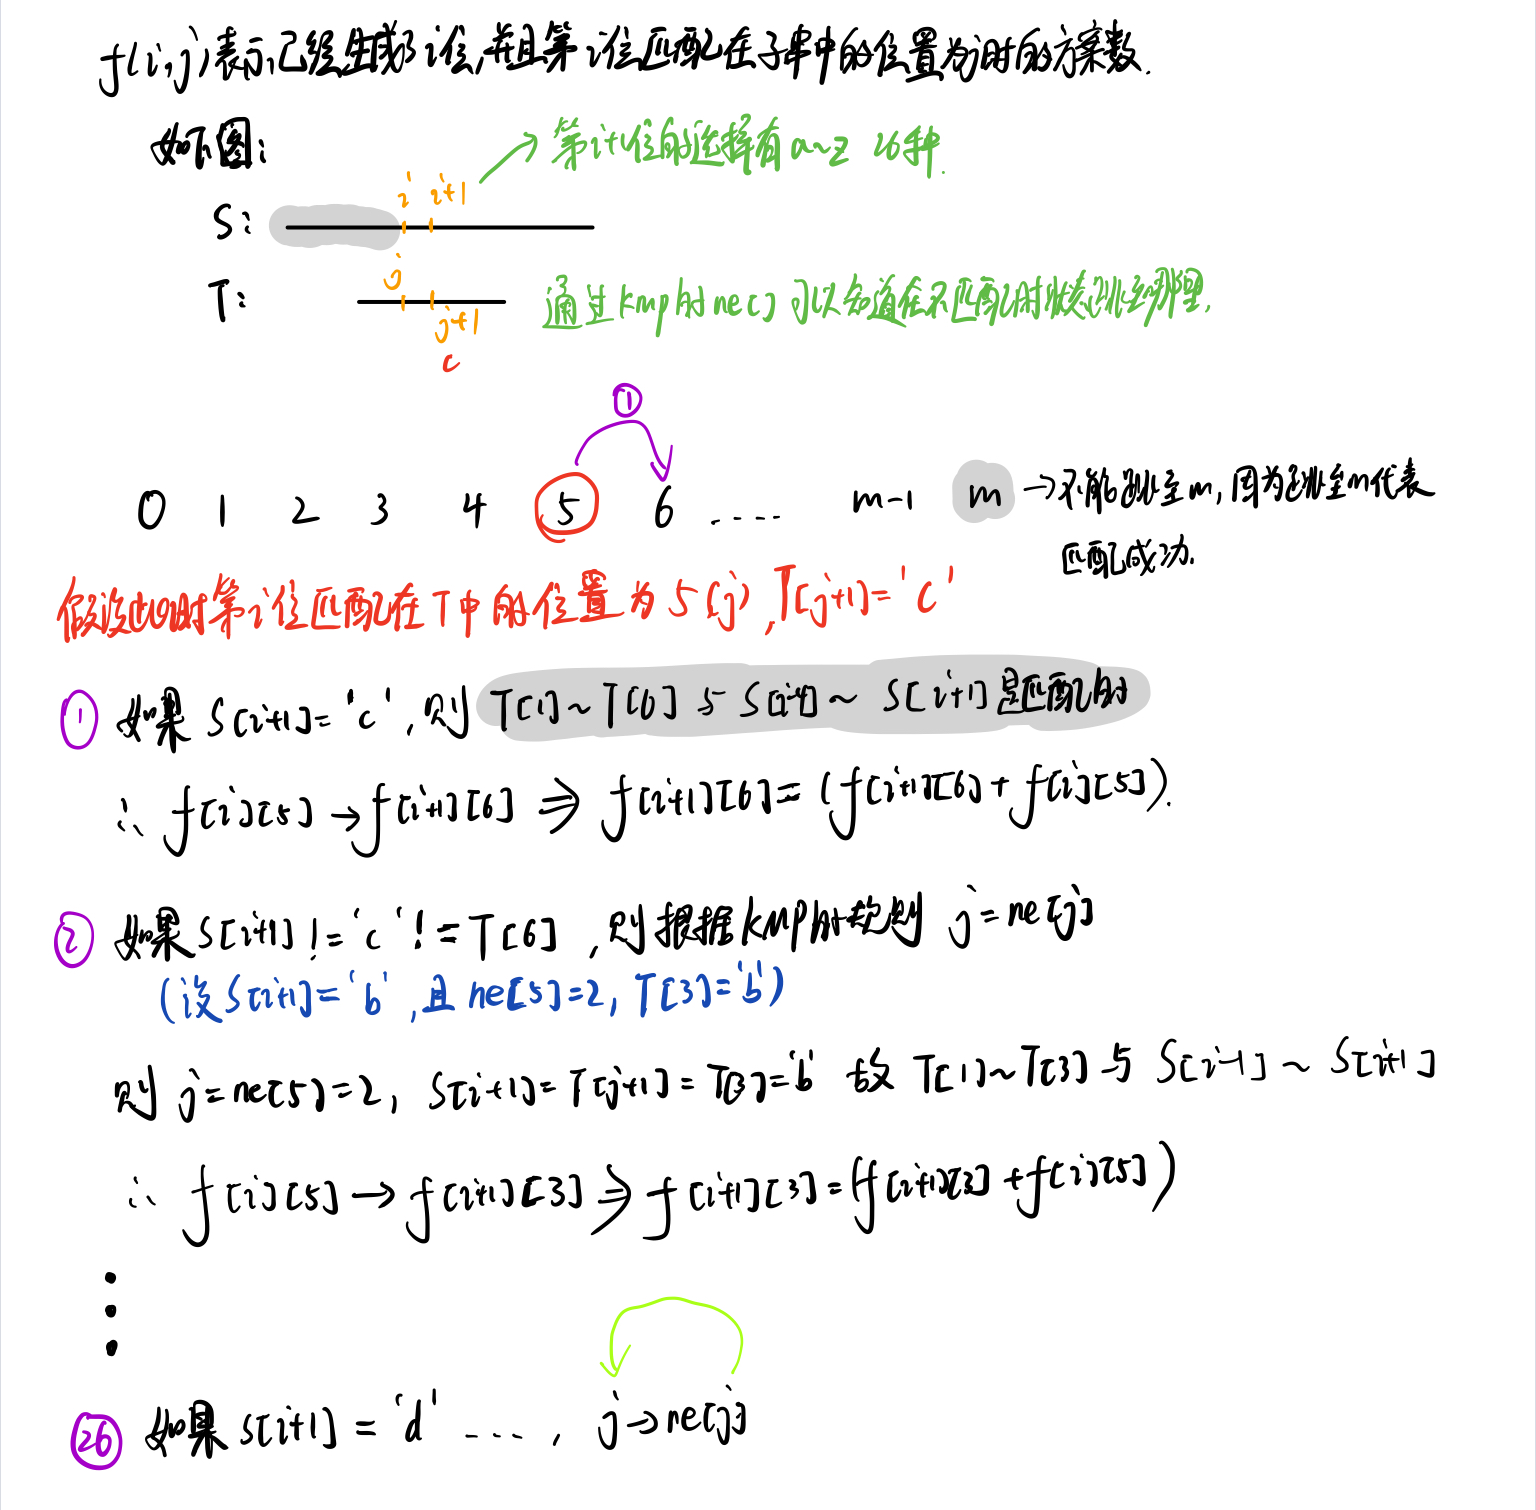 f(i,j)表示已经生成了i位,并且第i位匹配在子串中的位置为j时的方案数.
如下图:
→ 第i+1位的选择有a~z 26种.
i i+1
S:
j
T:
j+1
c
通过kmp的ne[]可以知道在不匹配时状态跳至哪里.
①
0 1 2 3 4 5 6 ..... m-1 m →不能跳至m,因为跳至m代表
匹配成功.
假设此时第i位匹配在T中的位置为5(j),T[j+1]='c'
① 如果S[i+1]='c',则T[1]~T[6]与S[i-4]~S[i+1]是匹配的
∴ f[i][5]→f[i+1][6] ⇒ f[i+1][6]=(f[i+1][6]+f[i][5]).
② 如果S[i+1]!='c'!=T[6],则根据kmp的规则 j=ne[j]
(设S[i+1]='b',且ne[5]=2,T[3]='b')
则j=ne[5]=2, S[i+1]=T[j+1]=T[3]='b' 故T[1]~T[3]与S[i-1]~S[i+1]
∴ f[i][5]→f[i+1][3] ⇒ f[i+1][3]=(f[i+1][3]+f[i][5])
⋮
26 如果S[i+1]='d' ...., j→ne[j]